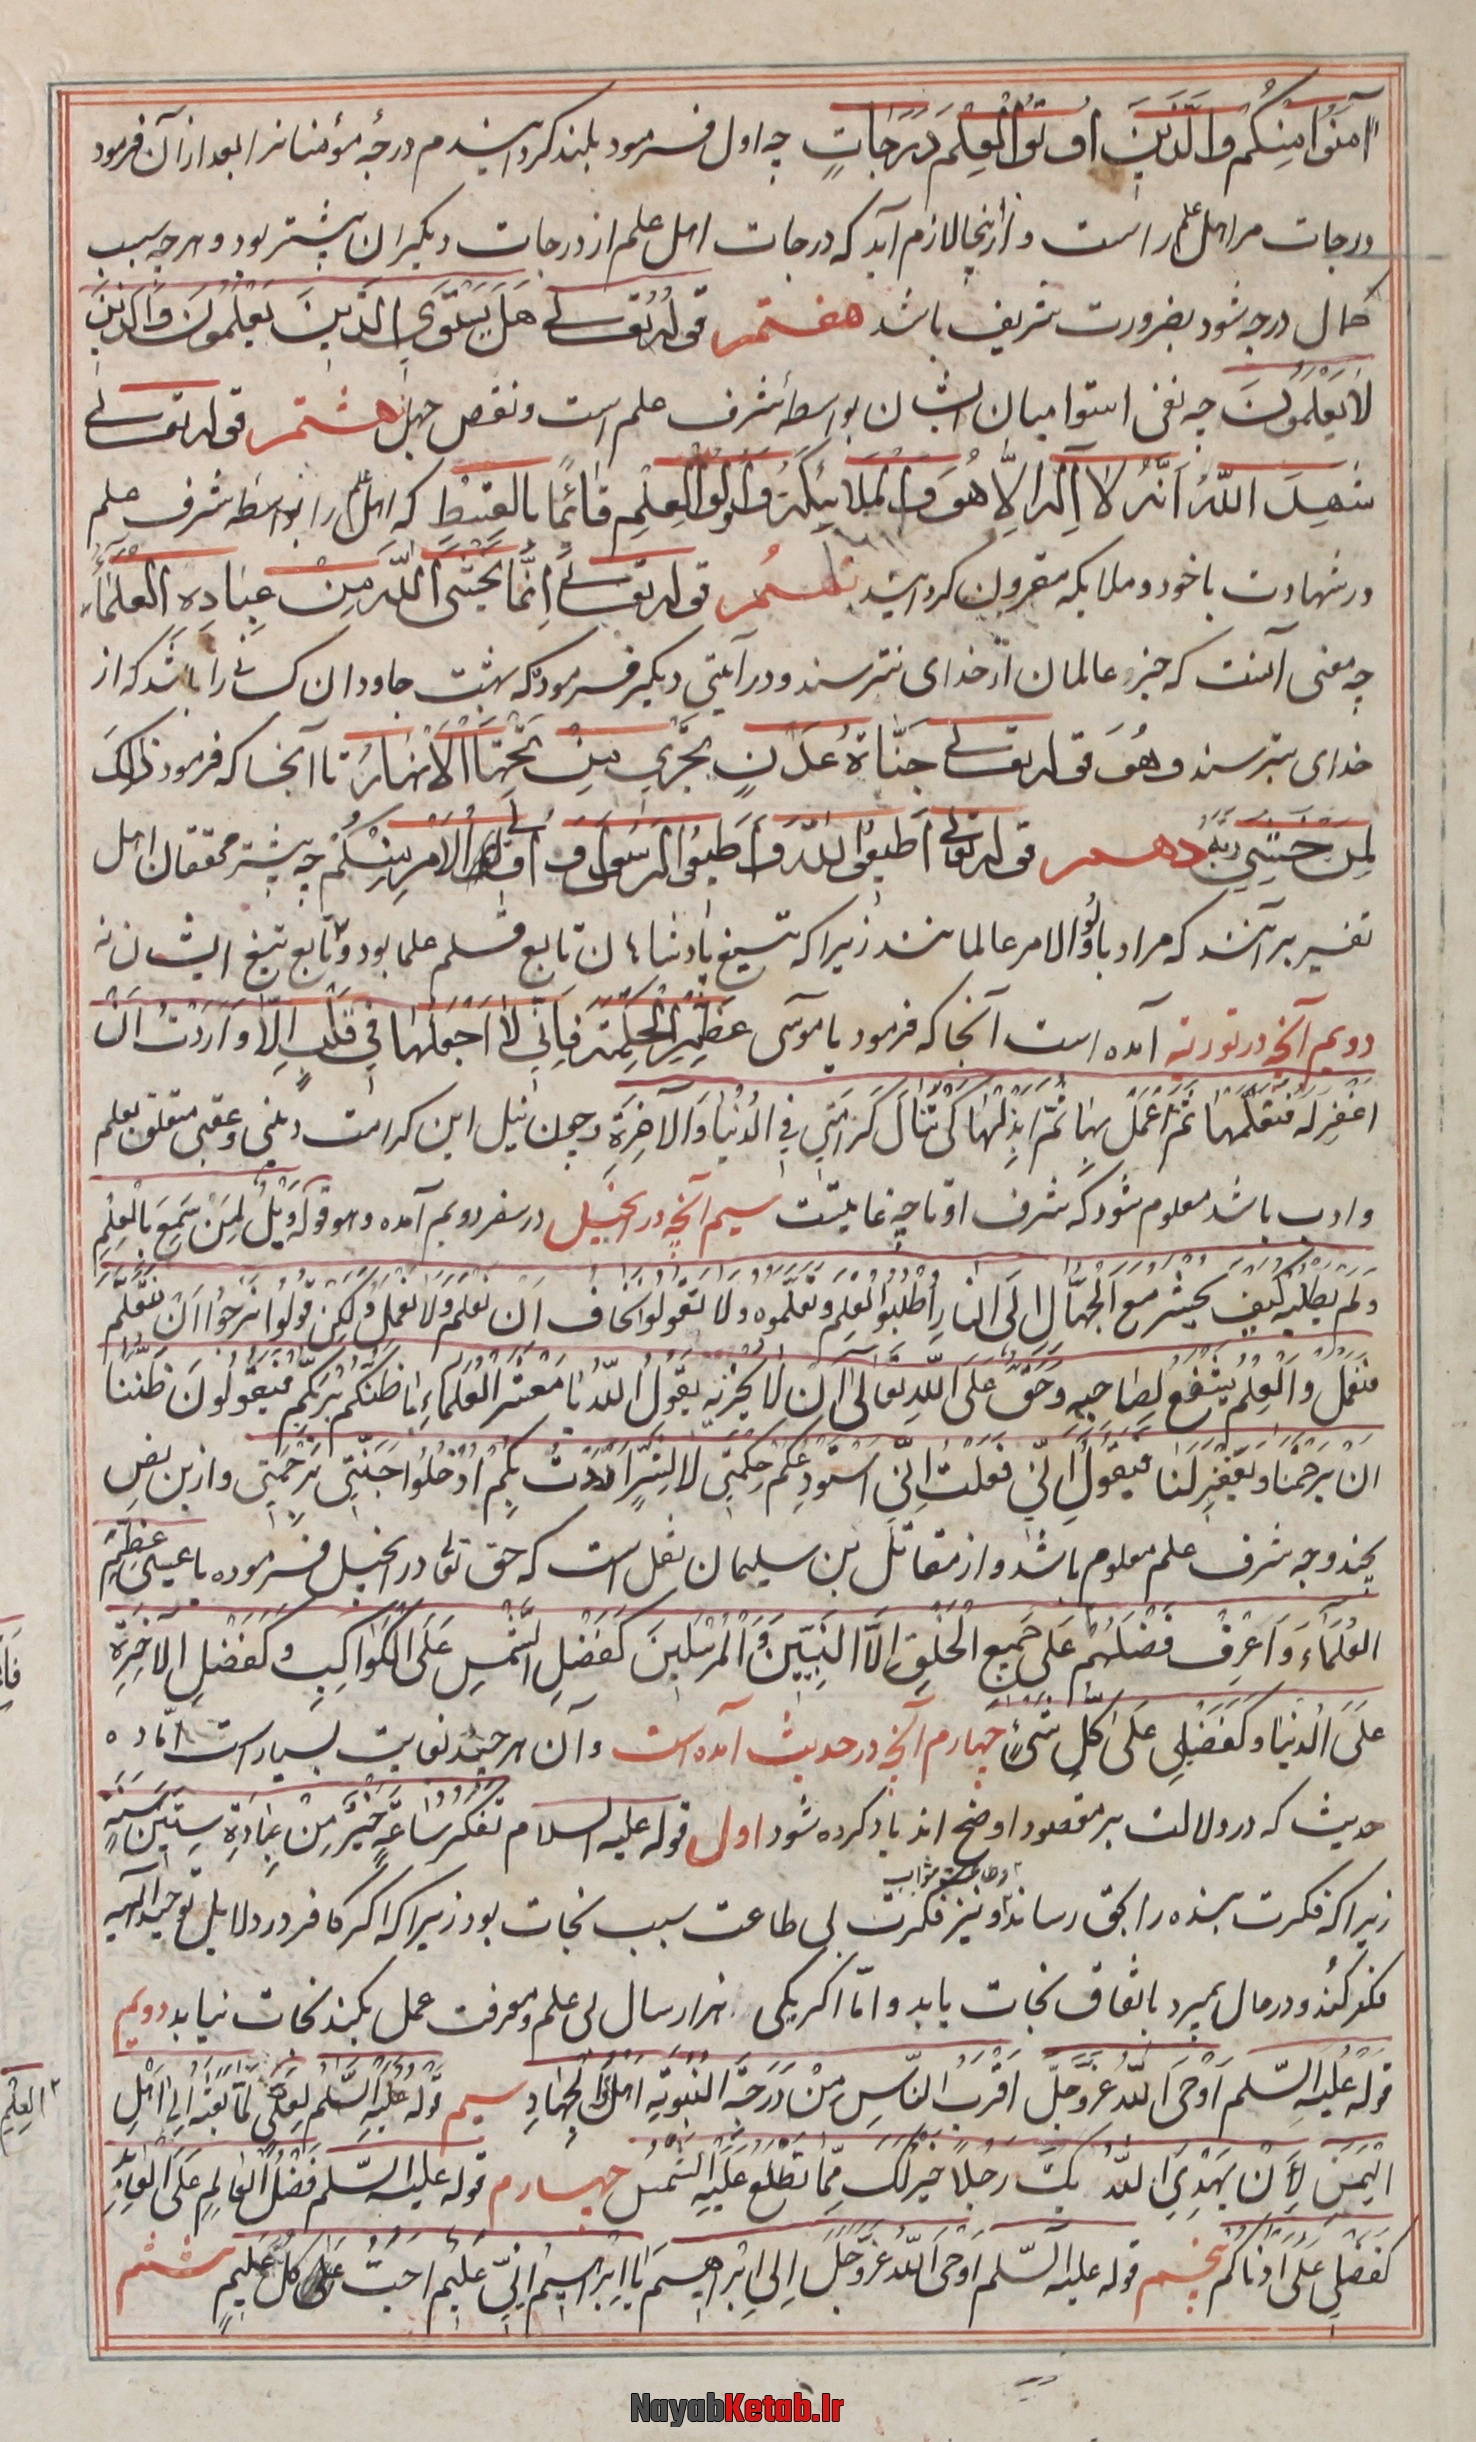 آمَنُوا مِنْكُمْ وَالَّذِينَ اُوتُوا الْعِلْمَ دَرَجَاتٍ چه اول فرمود بلند کردانیدم درجهٔ مؤمنانرا بعد از آن فرمود
درجات مر اهل علم راست و ازاینجا لازم آید که درجات اهل علم از درجات دیکران بیشتر بود و هرچه سبب
کمال درجه شود بضرورت شریف باشد هفتم قوله تعالے هَلْ يَسْتَوِي الَّذِينَ يَعْلَمُونَ وَالَّذِينَ
لَا يَعْلَمُونَ چه نفی استوا میان ایشان بواسطهٔ شرف علم است و نقص جهل هشتم قوله تعالے
شَهِدَ اللّٰهُ اَنَّهُ لَا اِلٰهَ اِلَّا هُوَ وَالْمَلَائِكَةُ وَاُولُوا الْعِلْمِ قَائِمًا بِالْقِسْطِ که اهل علم را بواسطه شرف علم
در شهادت با خود و ملایکه مقرون کردانید نهم قوله تعالے اِنَّمَا يَخْشَى اللّٰهَ مِنْ عِبَادِهِ الْعُلَمَاءُ
چه معنی آنست که جز عالمان از خدای نترسند و در آیتی دیکر فرمود که بهشت جاودان کسانے را باشد که از
خدای بترسند و هُوَ قوله تعالے جَنَّاتُ عَدْنٍ تَجْرِي مِنْ تَحْتِهَا الْاَنْهَارُ تا آنجا که فرمود ذٰلِكَ
لِمَنْ خَشِيَ رَبَّهُ دهم قوله تعالے اَطِيعُوا اللّٰهَ وَاَطِيعُوا الرَّسُولَ وَ اُولِي الْاَمْرِ مِنْكُمْ چه بیشتر محققان اهل
تفسیر برآنند که مراد باولو الامر عالمانند زیرا که تیغ پادشاهان تابع قلم علما بود و تابع تیغ ایشان نه
دویم آنچه در توریة آمده است آنجا که فرمود یا موسی عَظِّمِ الْحِكْمَةَ فَاِنِّي لَا اَجْعَلُهَا فِي قَلْبٍ اِلَّا وَ اَرَدْتُ اَنْ
اَغْفِرَ لَهُ فَتَعَلَّمْهَا ثُمَّ اعْمَلْ بِهَا ثُمَّ ابْذُلْهَا كَيْ تَنَالَ كَرَامَتِي فِي الدُّنْيَا وَالْآخِرَةِ و چون نیل این کرامت دنیی و عقبی متعلق بعلم
و ادب باشد معلوم شود که شرف او تا چه غایتست سیم آنچه در انجیل در سفر دویم آمده و هو قوله وَيْلٌ لِمَنْ سَمِعَ بِالْعِلْمِ
وَلَمْ يَطْلُبْهُ كَيْفَ يُحْشَرُ مَعَ الْجُهَّالِ اِلَى النَّارِ اُطْلُبُوا الْعِلْمَ وَتَعَلَّمُوهُ وَلَا تَقُولُوا نَخَافُ اَنْ نَعْلَمَ وَلَا نَعْمَلَ وَلٰكِنْ قُولُوا نَرْجُوا اَنْ نَعْلَمَ
فَنَعْمَلَ وَالْعِلْمُ يَشْفَعُ لِصَاحِبِهِ وَحَقٌّ عَلَى اللّٰهِ تَعَالٰى اَنْ لَا يُخْزِيَهُ يَقُولُ اللّٰهُ يَا مَعْشَرَ الْعُلَمَاءِ مَا ظَنُّكُمْ بِرَبِّكُمْ فَيَقُولُونَ ظَنُّنَا
اَنْ يَرْحَمَنَا وَيَغْفِرَ لَنَا فَيَقُولُ اِنِّي فَعَلْتُ اِنِّي اسْتَوْدَعْتُكُمْ حِكْمَتِي لَا لِشَرٍّ اَرَدْتُ بِكُمْ اُدْخُلُوا جَنَّتِي بِرَحْمَتِي و ازین نص
بچند وجه شرف علم معلوم باشد و از مقاتل بن سلیمان نقل است که حق تعالی در انجیل فرموده یا عیسی عَظِّمِ
الْعُلَمَاءَ وَاعْرِفْ فَضْلَهُمْ عَلَى جَمِيعِ الْخَلْقِ اِلَّا النَّبِيِّينَ وَالْمُرْسَلِينَ كَفَضْلِ الشَّمْسِ عَلَى الْكَوَاكِبِ وَكَفَضْلِ الْآخِرَةِ
عَلَى الدُّنْيَا وَكَفَضْلِي عَلَى كُلِّ شَيْءٍ چهارم آنچه در حدیث آمده است و آن هرچند بغایت بسیار است اما ده
حدیث که در دلالت بر مقصود اوضح اند یاد کرده شود اول قوله علیه السلام تَفَكُّرُ سَاعَةٍ خَيْرٌ مِنْ عِبَادَةِ سِتِّينَ سَنَةٍ
زیرا که فکرت بنده را بحق رساند و نیز فکرت بی طاعت سبب نجات بود زیرا که اکر کافر در دلایل توحید الهیه
فکر کند و در حال بمیرد باتفاق نجات یابد و اما اکر یکی هزار سال بی علم و معرفت عمل بکند نجات نیابد دویم
قوله علیه السّلم اَوْحَى اللّٰهُ عَزَّ وَجَلَّ اَقْرَبُ النَّاسِ مِنْ دَرَجَةِ النُّبُوَّةِ اَهْلُ وَالْجِهَادِ سیم قوله علیه السّلم لِعَلِيٍّ لَمَّا بَعَثَهُ اِلَى اَهْلِ
العِلْمِ
الْيَمَنِ لَاَنْ يَهْدِيَ اللّٰهُ بِكَ رَجُلًا خَيْرٌ لَكَ مِمَّا تَطْلُعُ عَلَيْهِ الشَّمْسُ چهارم قوله علیه السّلم فَضْلُ الْعَالِمِ عَلَى الْعَابِدِ
كَفَضْلِي عَلَى اَدْنَاكُمْ پنجم قوله علیه السّلم اَوْحَى اللّٰهُ عَزَّ وَجَلَّ اِلَى اِبْرٰهِيمَ يَا اِبْرٰهِيمُ اِنِّي عَلِيمٌ اُحِبُّ كُلَّ عَلِيمٍ ششم
NayabKetab.Ir